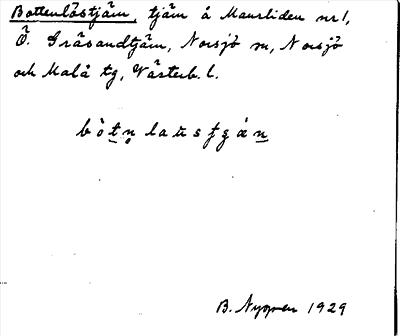 Bottenlöstjärn, tjärn å Maurliden nr 1,
Ö. Gråsandtjärn, Norsjö sn, Norsjö
och Malå tg, Västerb. l.
B. Nygren 1929